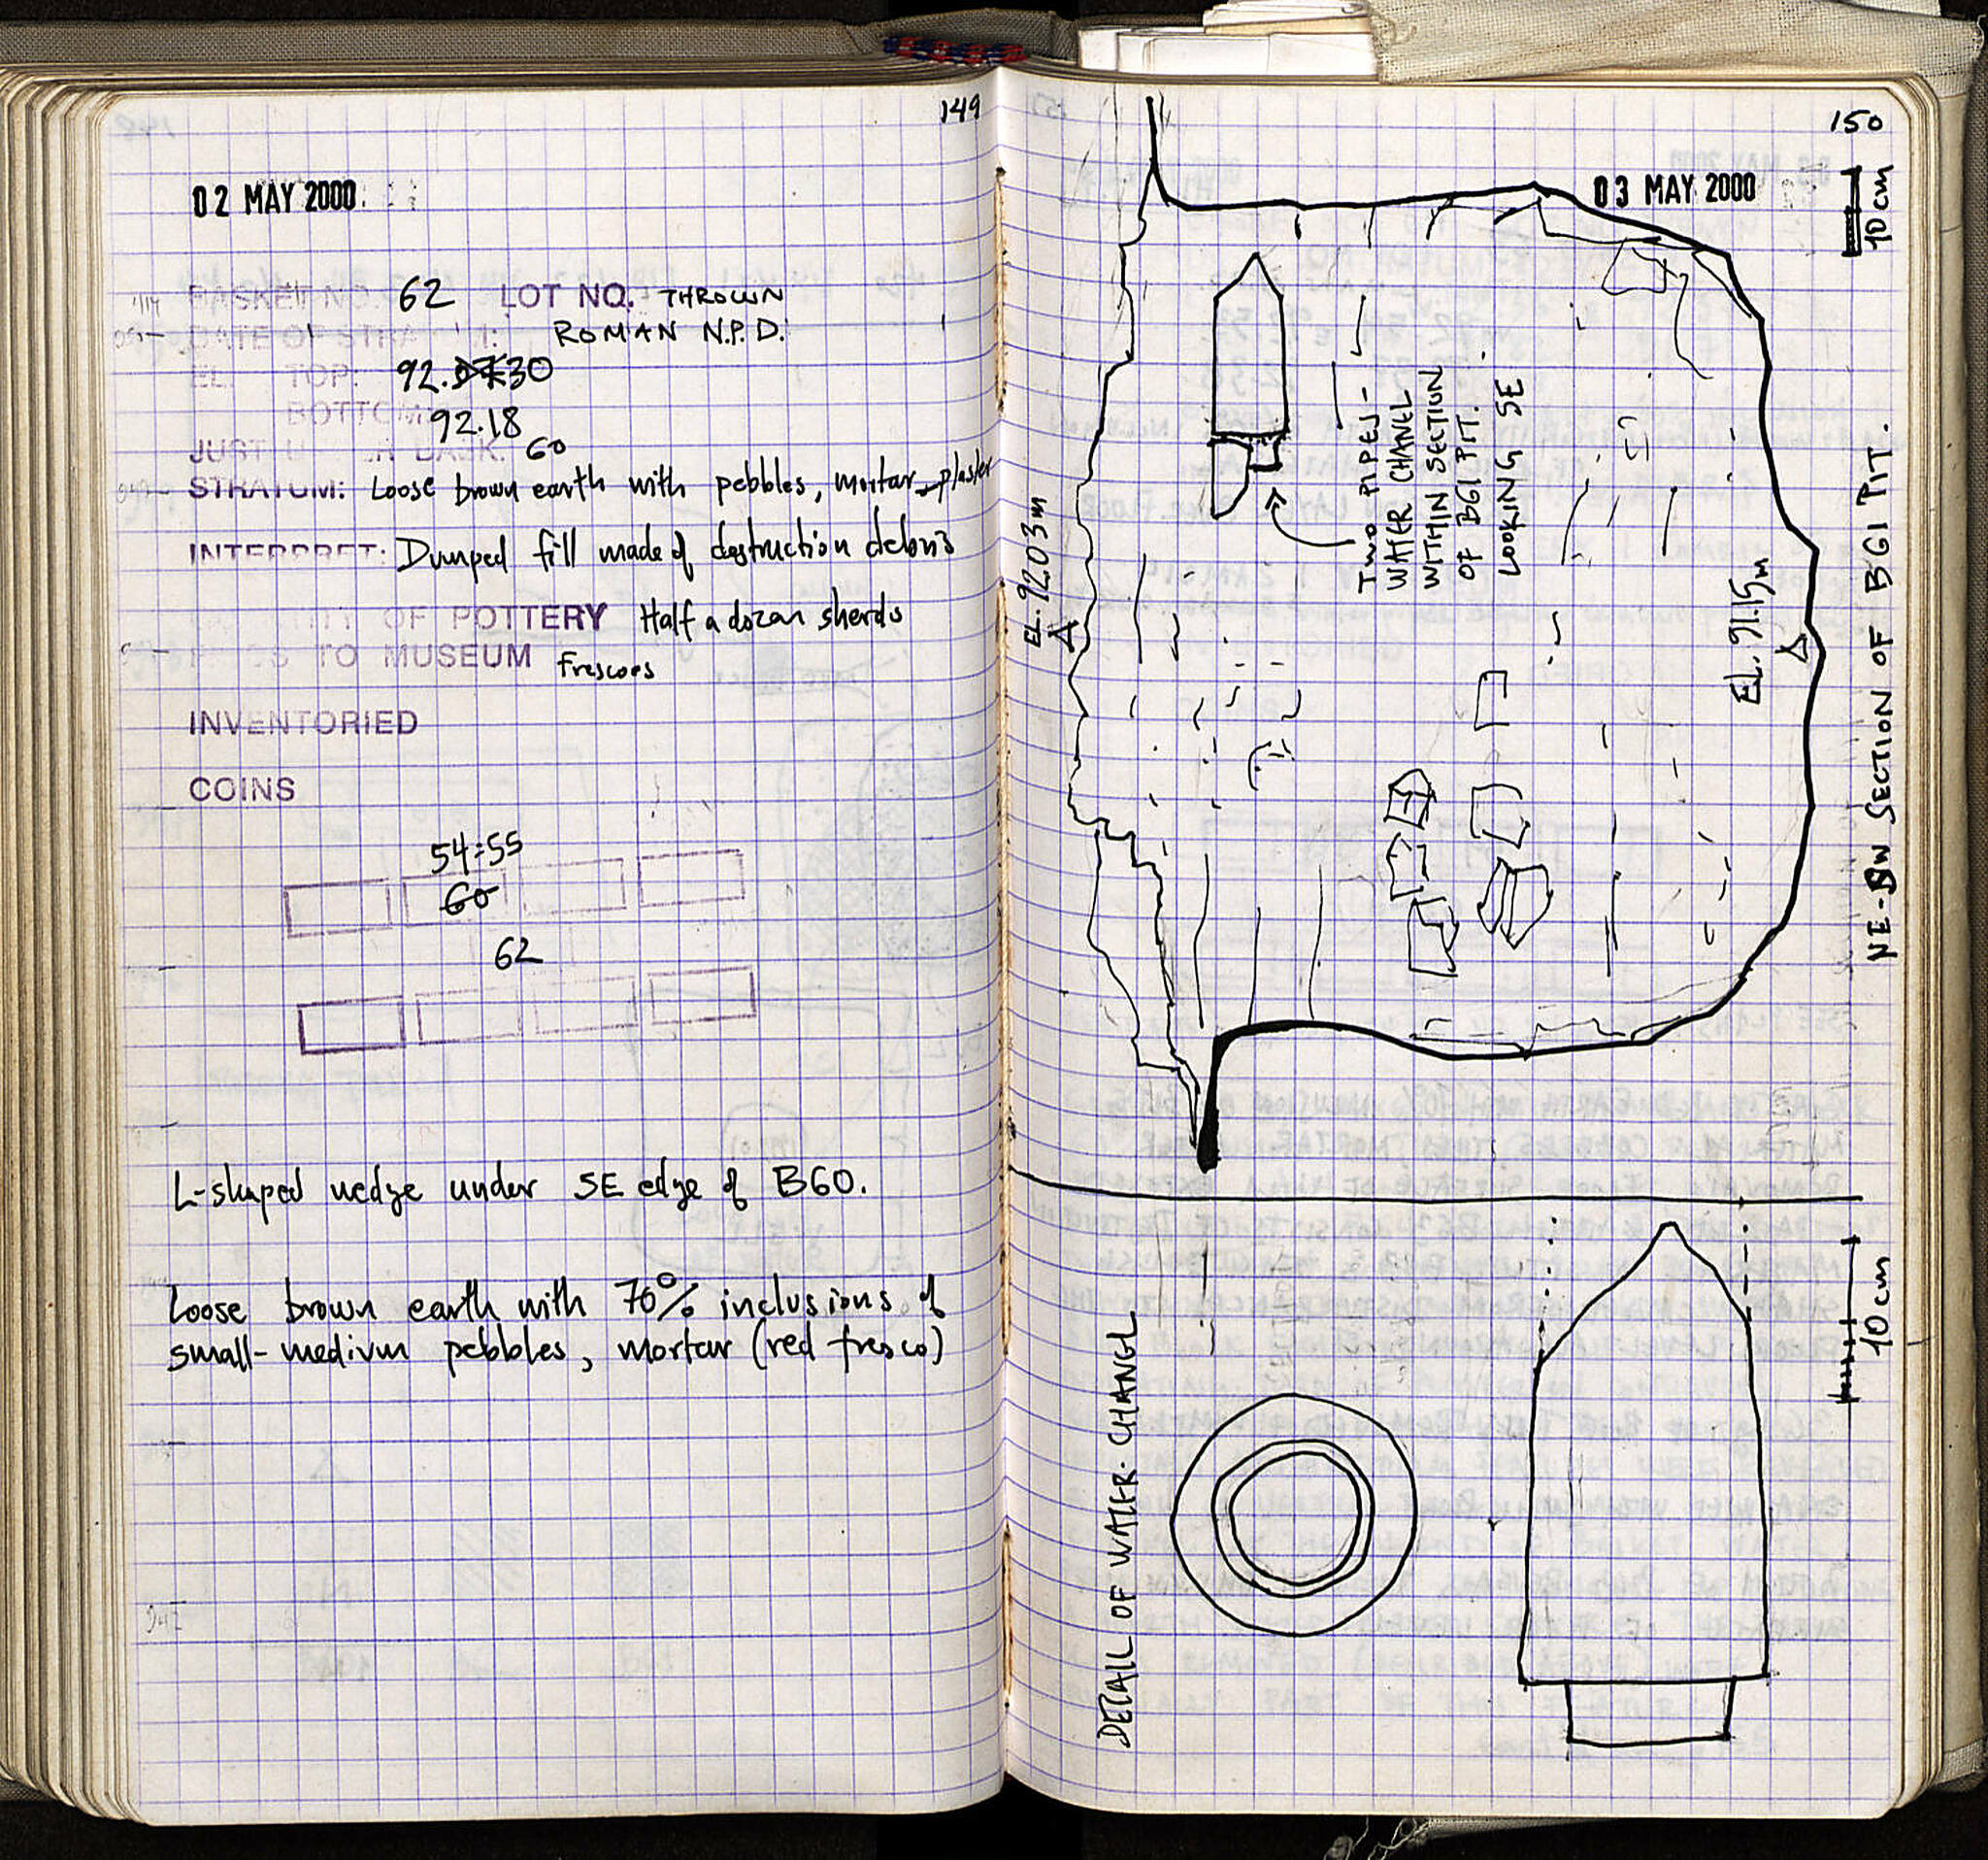 149
02 MAY 2000
BASKET NO. 62 LOT NO. THROWN
DATE OF STRATUM: ROMAN N.P.D.
EL. TOP: 92.30
BOTTOM 92.18
JUST UNDER BASK. 60
STRATUM: Loose brown earth with pebbles, mortar, plaster
INTERPRET: Dumped fill made of destruction debris
QUANTITY OF POTTERY Half a dozan sherds
TO MUSEUM Frescoes
INVENTORIED
COINS
54=55
60
62
L-shaped wedge under SE edge of B60.
Loose brown earth with 70% inclusions of
small-medium pebbles, mortar (red fresco)
150
03 MAY 2000
10 cm
TWO PIPES-
WATER CHANEL
WITHIN SECTION
OF B61 PIT.
LOOKING SE
EL. 92.03 m
EL. 91.15 m
NE-SW SECTION OF B61 PIT.
DETAIL OF WATER-CHANEL
10 cm